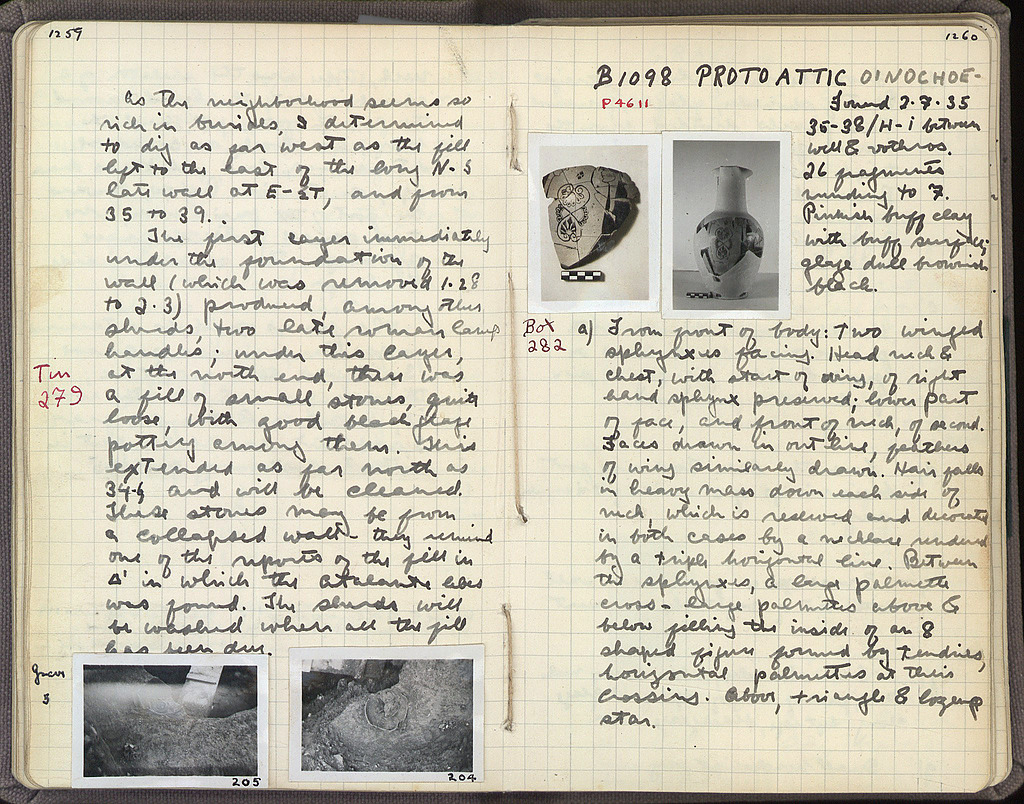 1259
As the neighborhood seems so
rich in burials, I determined
to dig as far west as the fill
left to the east of the long N-S
late wall at E-ΣΤ, and from
35 to 39..
The first layer immediately
under the foundation of the
wall (which was removed 1.28
to 2.3) produced, among other
sherds, two late roman lamp
handles; under this layer,
at the north end, there was
Tin
279
a fill of small stones, quite
loose, with good black glaze
pottery among them. This
extended as far north as
34 and will be cleaned.
These stones may be from
a collapsed wall - they remind
one of the reports of the fill in
Δ' in which the Atalante
was found. The sherds will
be washed when all the fill
has been dug.
Grave
3
205
204
1260
B1098 PROTOATTIC OINOCHOE-
P4611
Found 2.7.35
35-38/H-I between
well & vothros.
26 fragments
mending to 7.
Pinkish buff clay
with buff surface;
glaze dull brownish
black.
Box
282
a) From front of body: Two winged
sphynxes facing. Head neck &
chest, with start of wing, of right
hand sphynx preserved; lower part
of face, and front of neck, of second.
Faces drawn in outline, feathers
of wing similarly drawn. Hair falls
in heavy mass down each side of
neck, which is reserved and decorated
in both cases by a necklace rendered
by a triple horizontal line. Between
the sphynxes, a large palmette
cross - large palmettes above &
below filling the inside of an 8
shaped figure formed by tendrils,
horizontal palmettes at their
crossing. Above, triangle & lozenge
star.